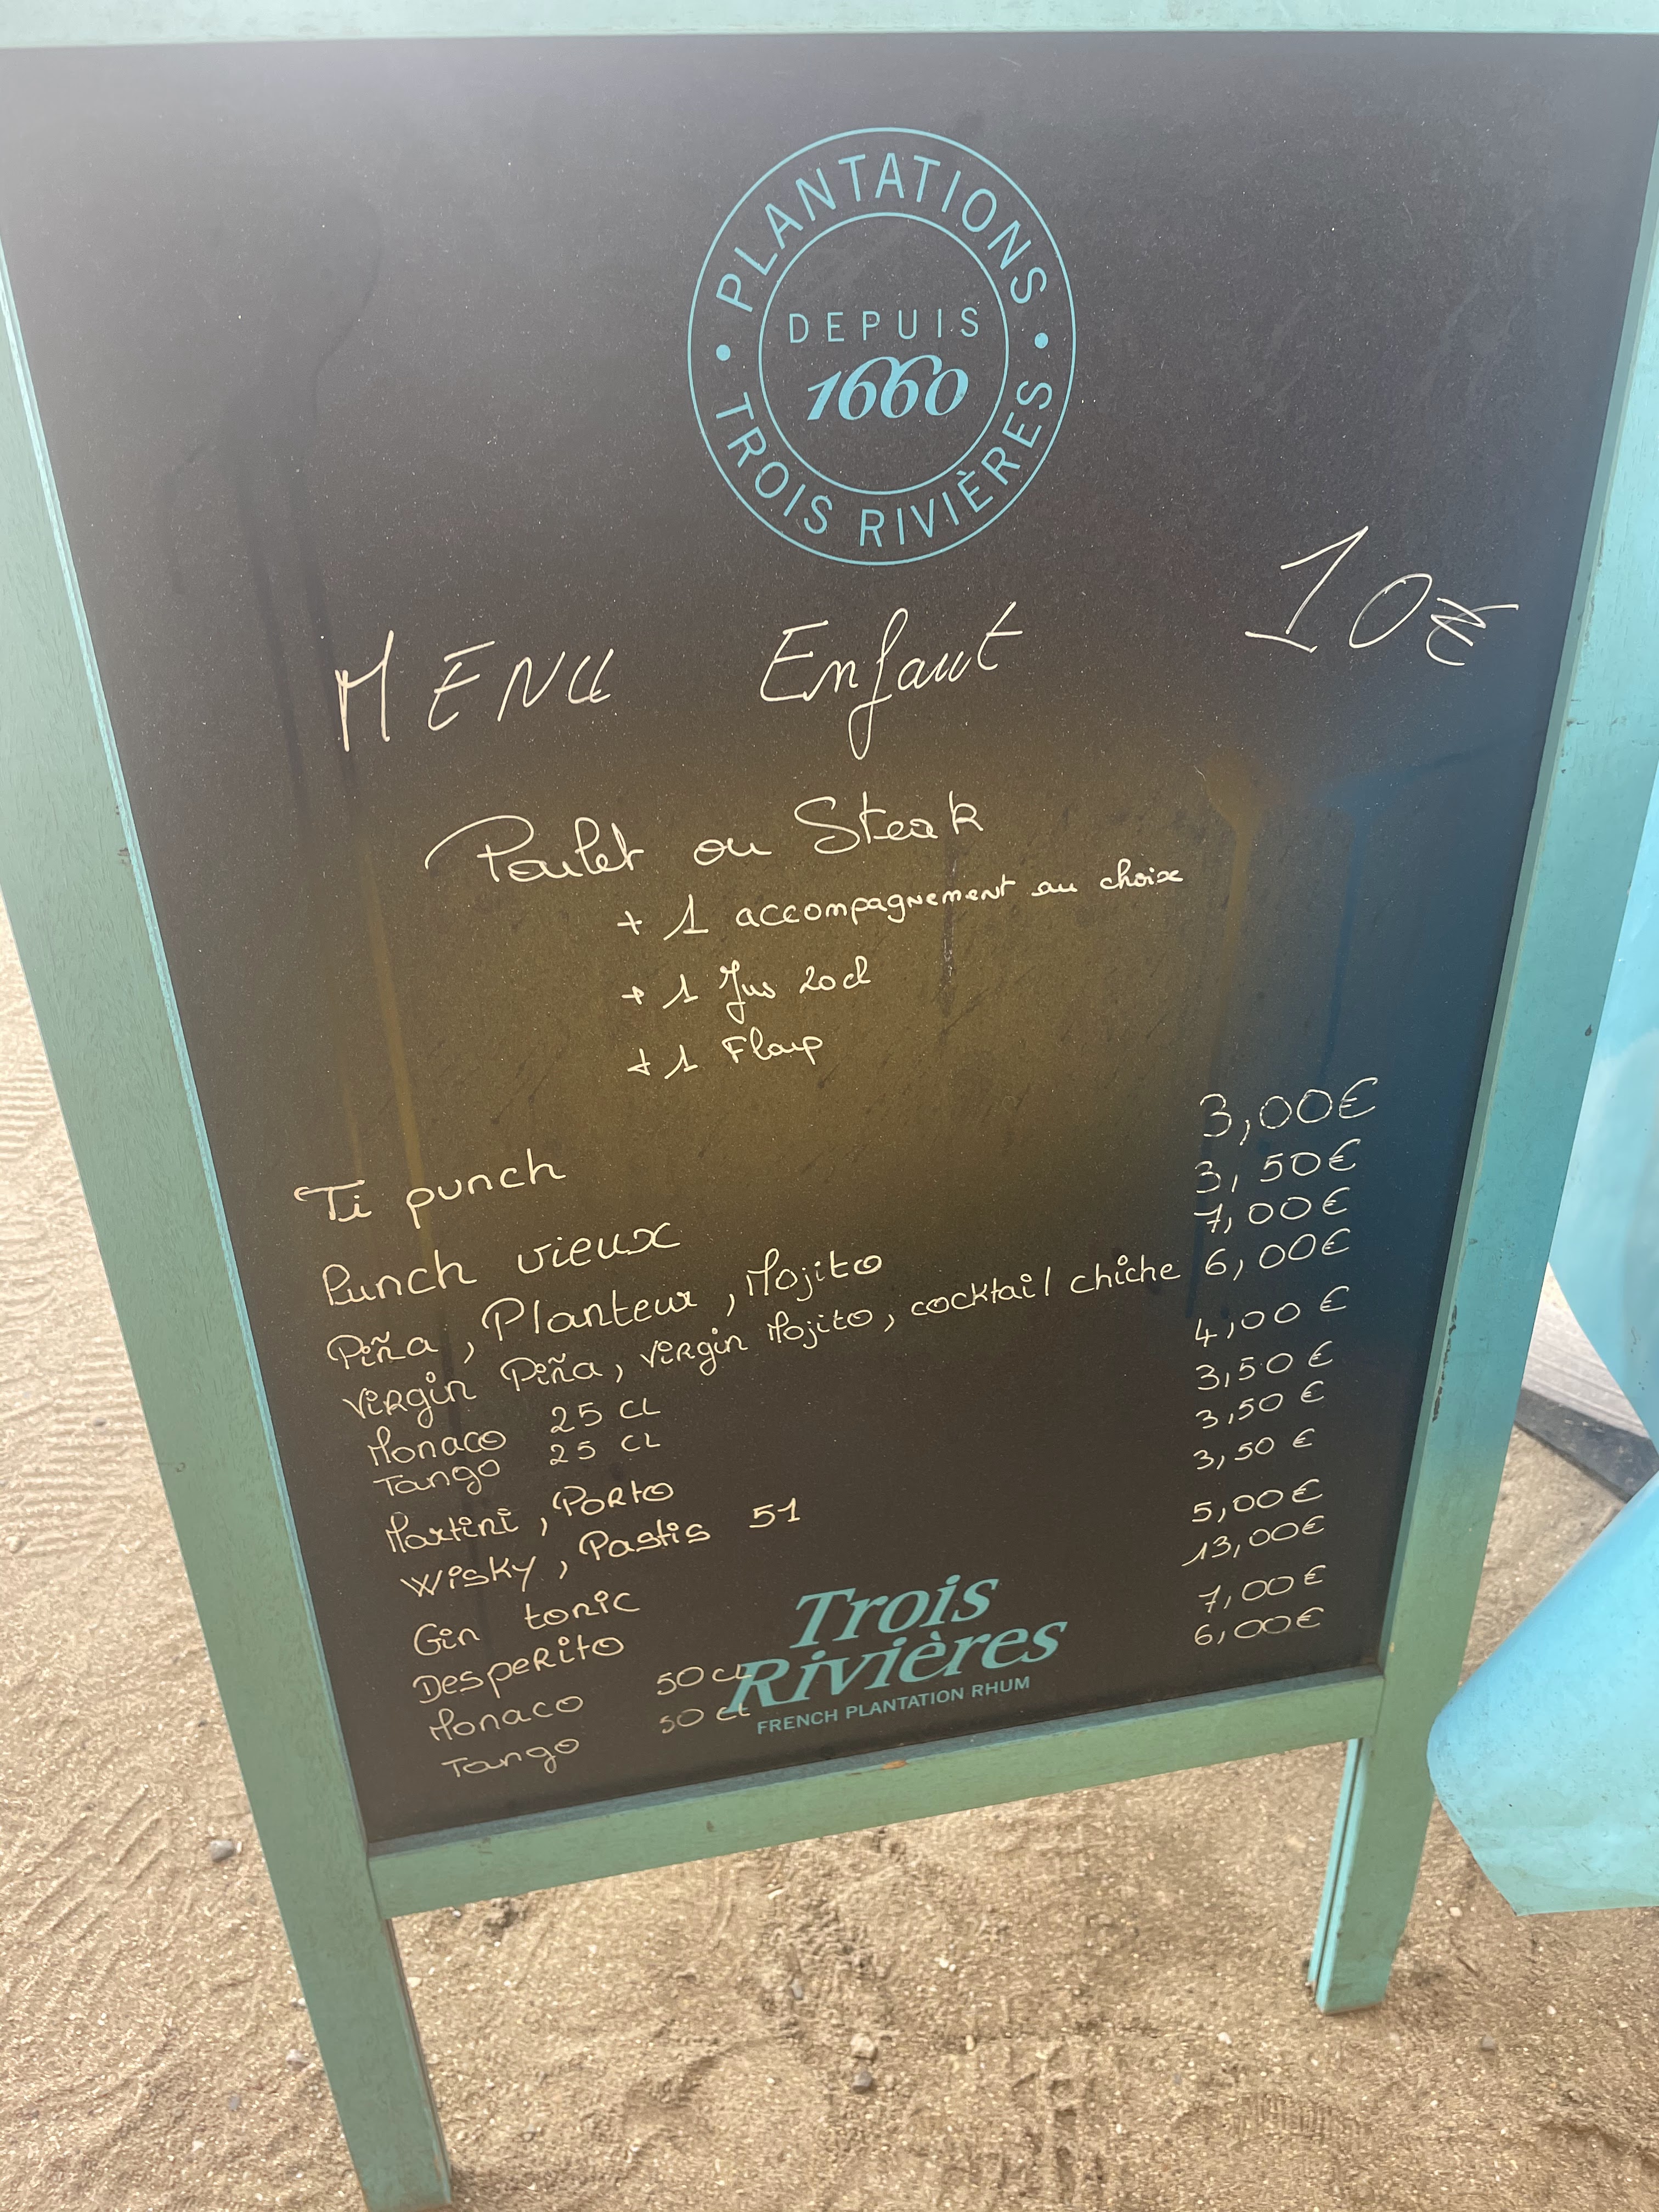 PLANTATIONS
DEPUIS
1660
TROIS RIVIÈRES
MENU Enfant 10€
Poulet ou Steak
+ 1 accompagnement au choix
+ 1 Jus 20cl
+ 1 Floup
Ti punch 3,00€
Punch vieux 3,50€
Piña, Planteur, Mojito 7,00€
Virgin Piña, Virgin Mojito, cocktail chiche 6,00€
Monaco 25 CL 4,00 €
Tango 25 CL 3,50 €
Martini, Porto 3,50 €
Wisky, Pastis 51 3,50 €
Gin tonic 5,00€
Desperito 13,00€
Monaco 50 CL 7,00€
Tango 50 CL 6,00€
Trois
Rivières
FRENCH PLANTATION RHUM